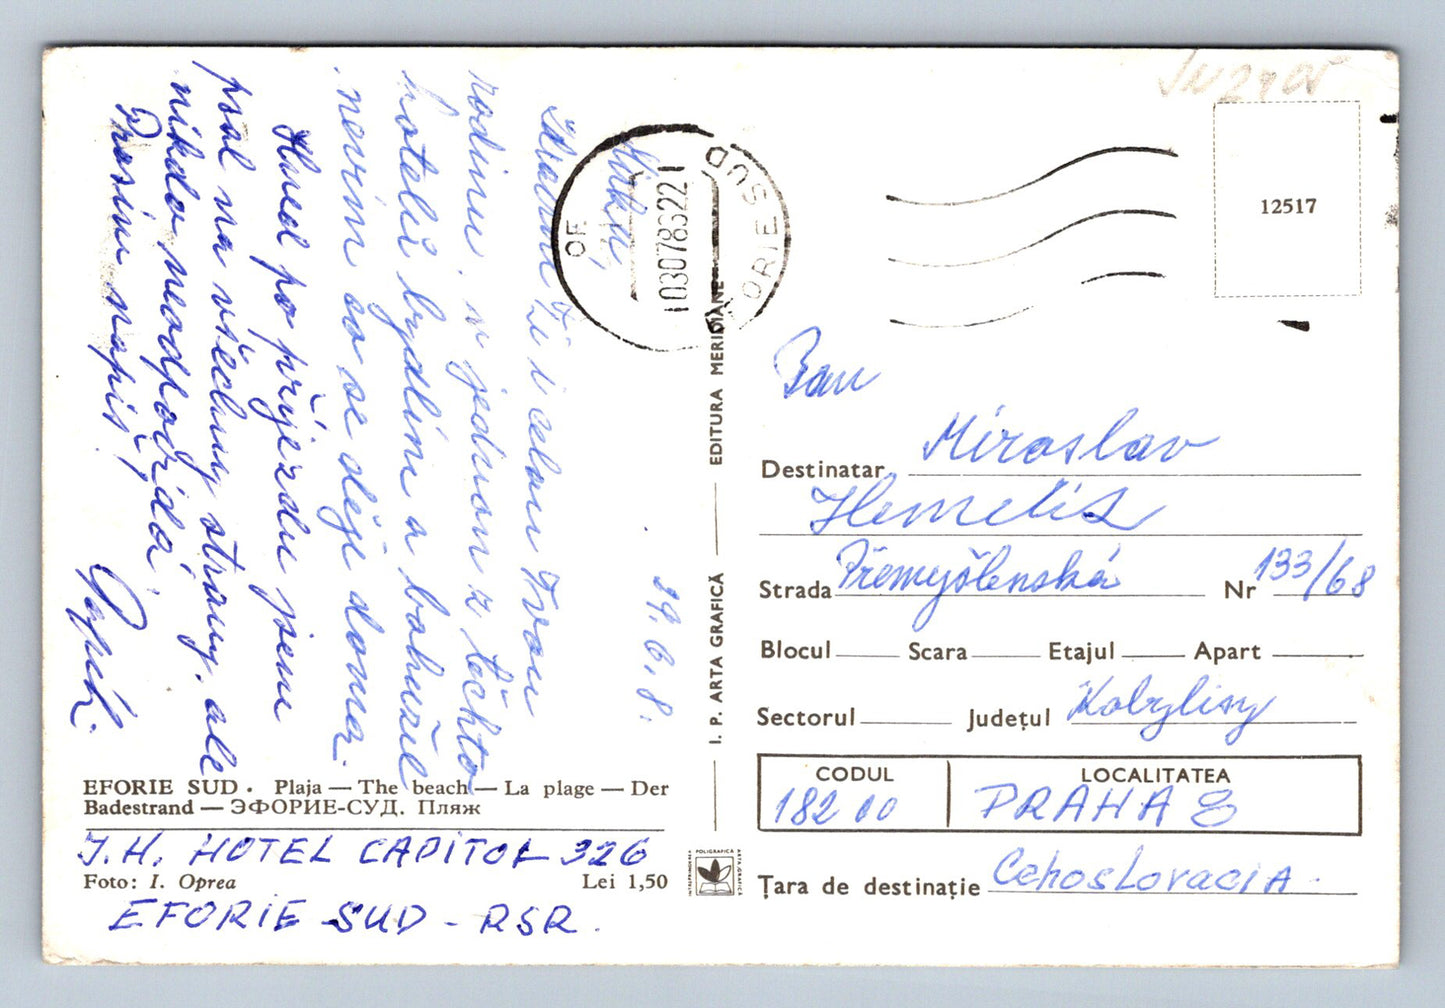 29.6.8.
Mirku,
zdraví Tě i celou Tvou
rodinu. v jednom z těchto
hotelů bydlím a bohužel
nevím co se děje doma.
Hned po příjezdu jsem
psal na všechny strany, ale
nikdo neodpovídá
Prosím napiš!
EFORIE SUD • Plaja — The beach — La plage — Der
Badestrand — ЭФОРИЕ-СУД. Пляж
J.H. HOTEL CAPITOL 326
Foto: I. Oprea Lei 1,50
EFORIE SUD - RSR.
I. P. ARTA GRAFICĂ — EDITURA MERIDIANE
OF. EFORIE SUD
03078322
POLIGRAFICA
ARTA GRAFICĂ
INTREPRINDEREA
12517
Pan
Destinatar Miroslav
Strada Přemyšlenská Nr 133/68
Blocul Scara Etajul Apart
Sectorul Județul Kobylisy
CODUL LOCALITATEA
182 00 PRAHA 8
Țara de destinație Cehoslovacia